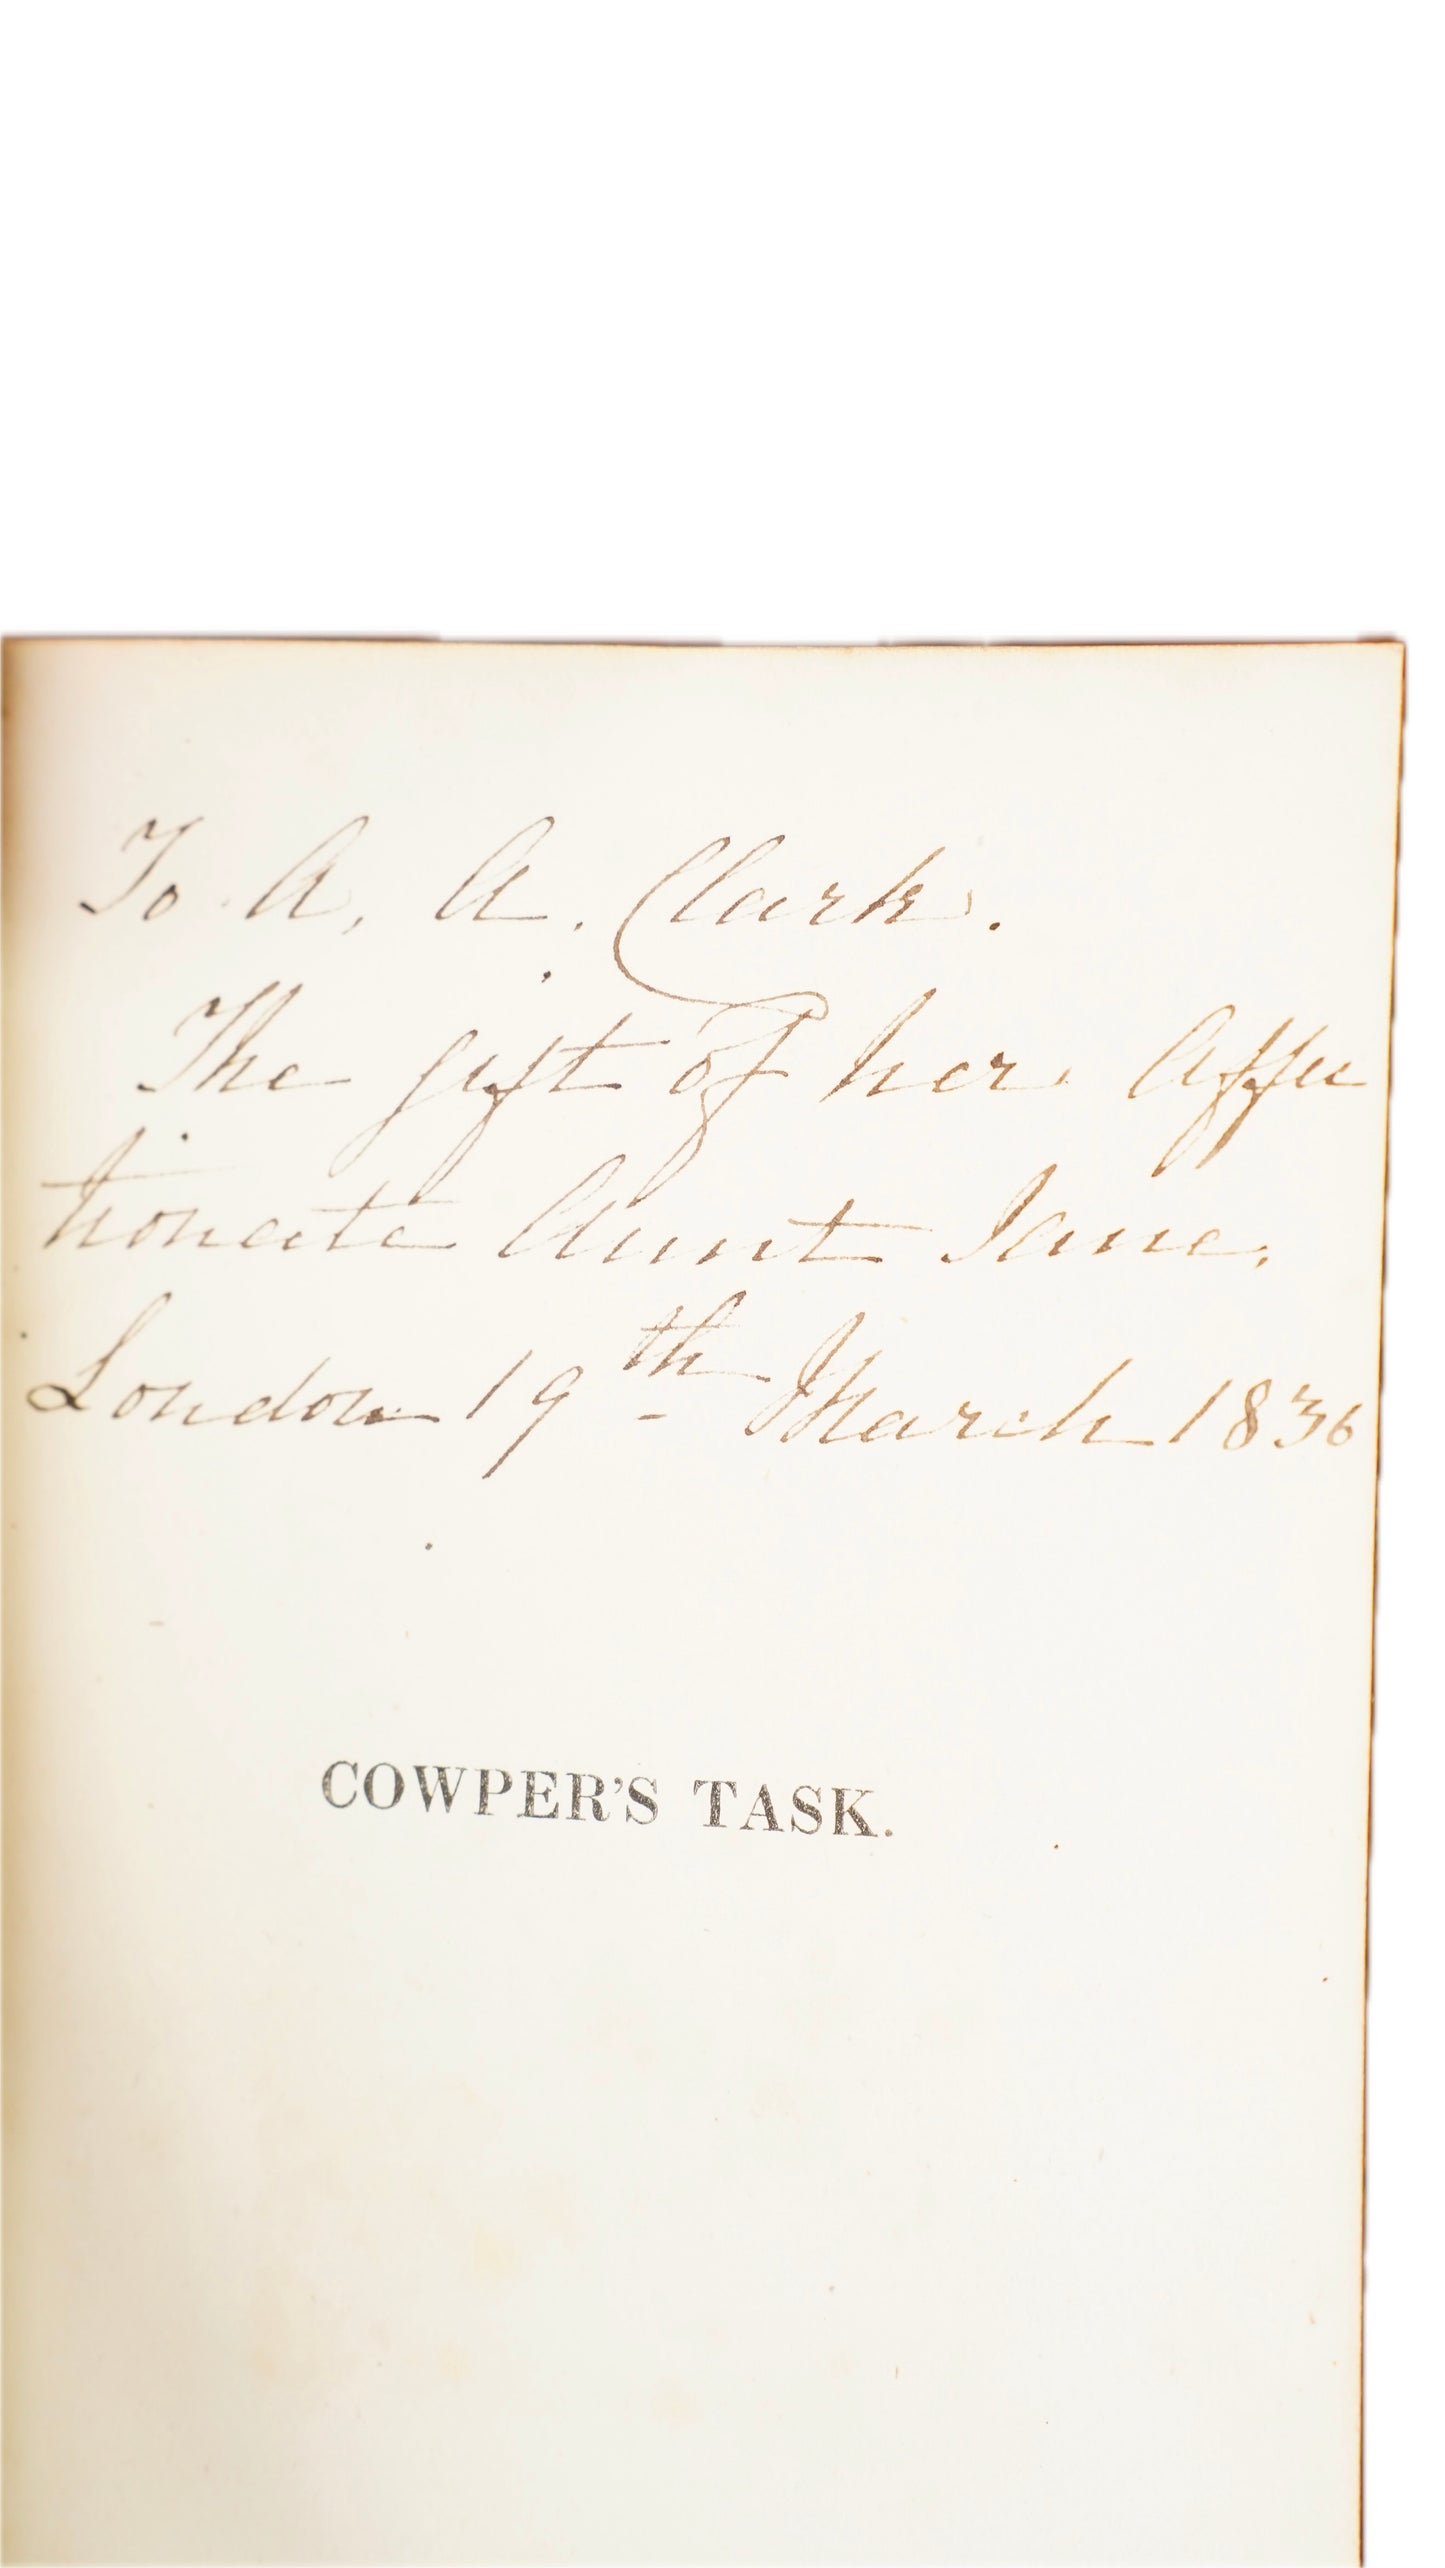 To A. A. Clark.
The gift of her Affec
tionate Aunt Jane.
London 19th - March 1836
COWPER'S TASK.